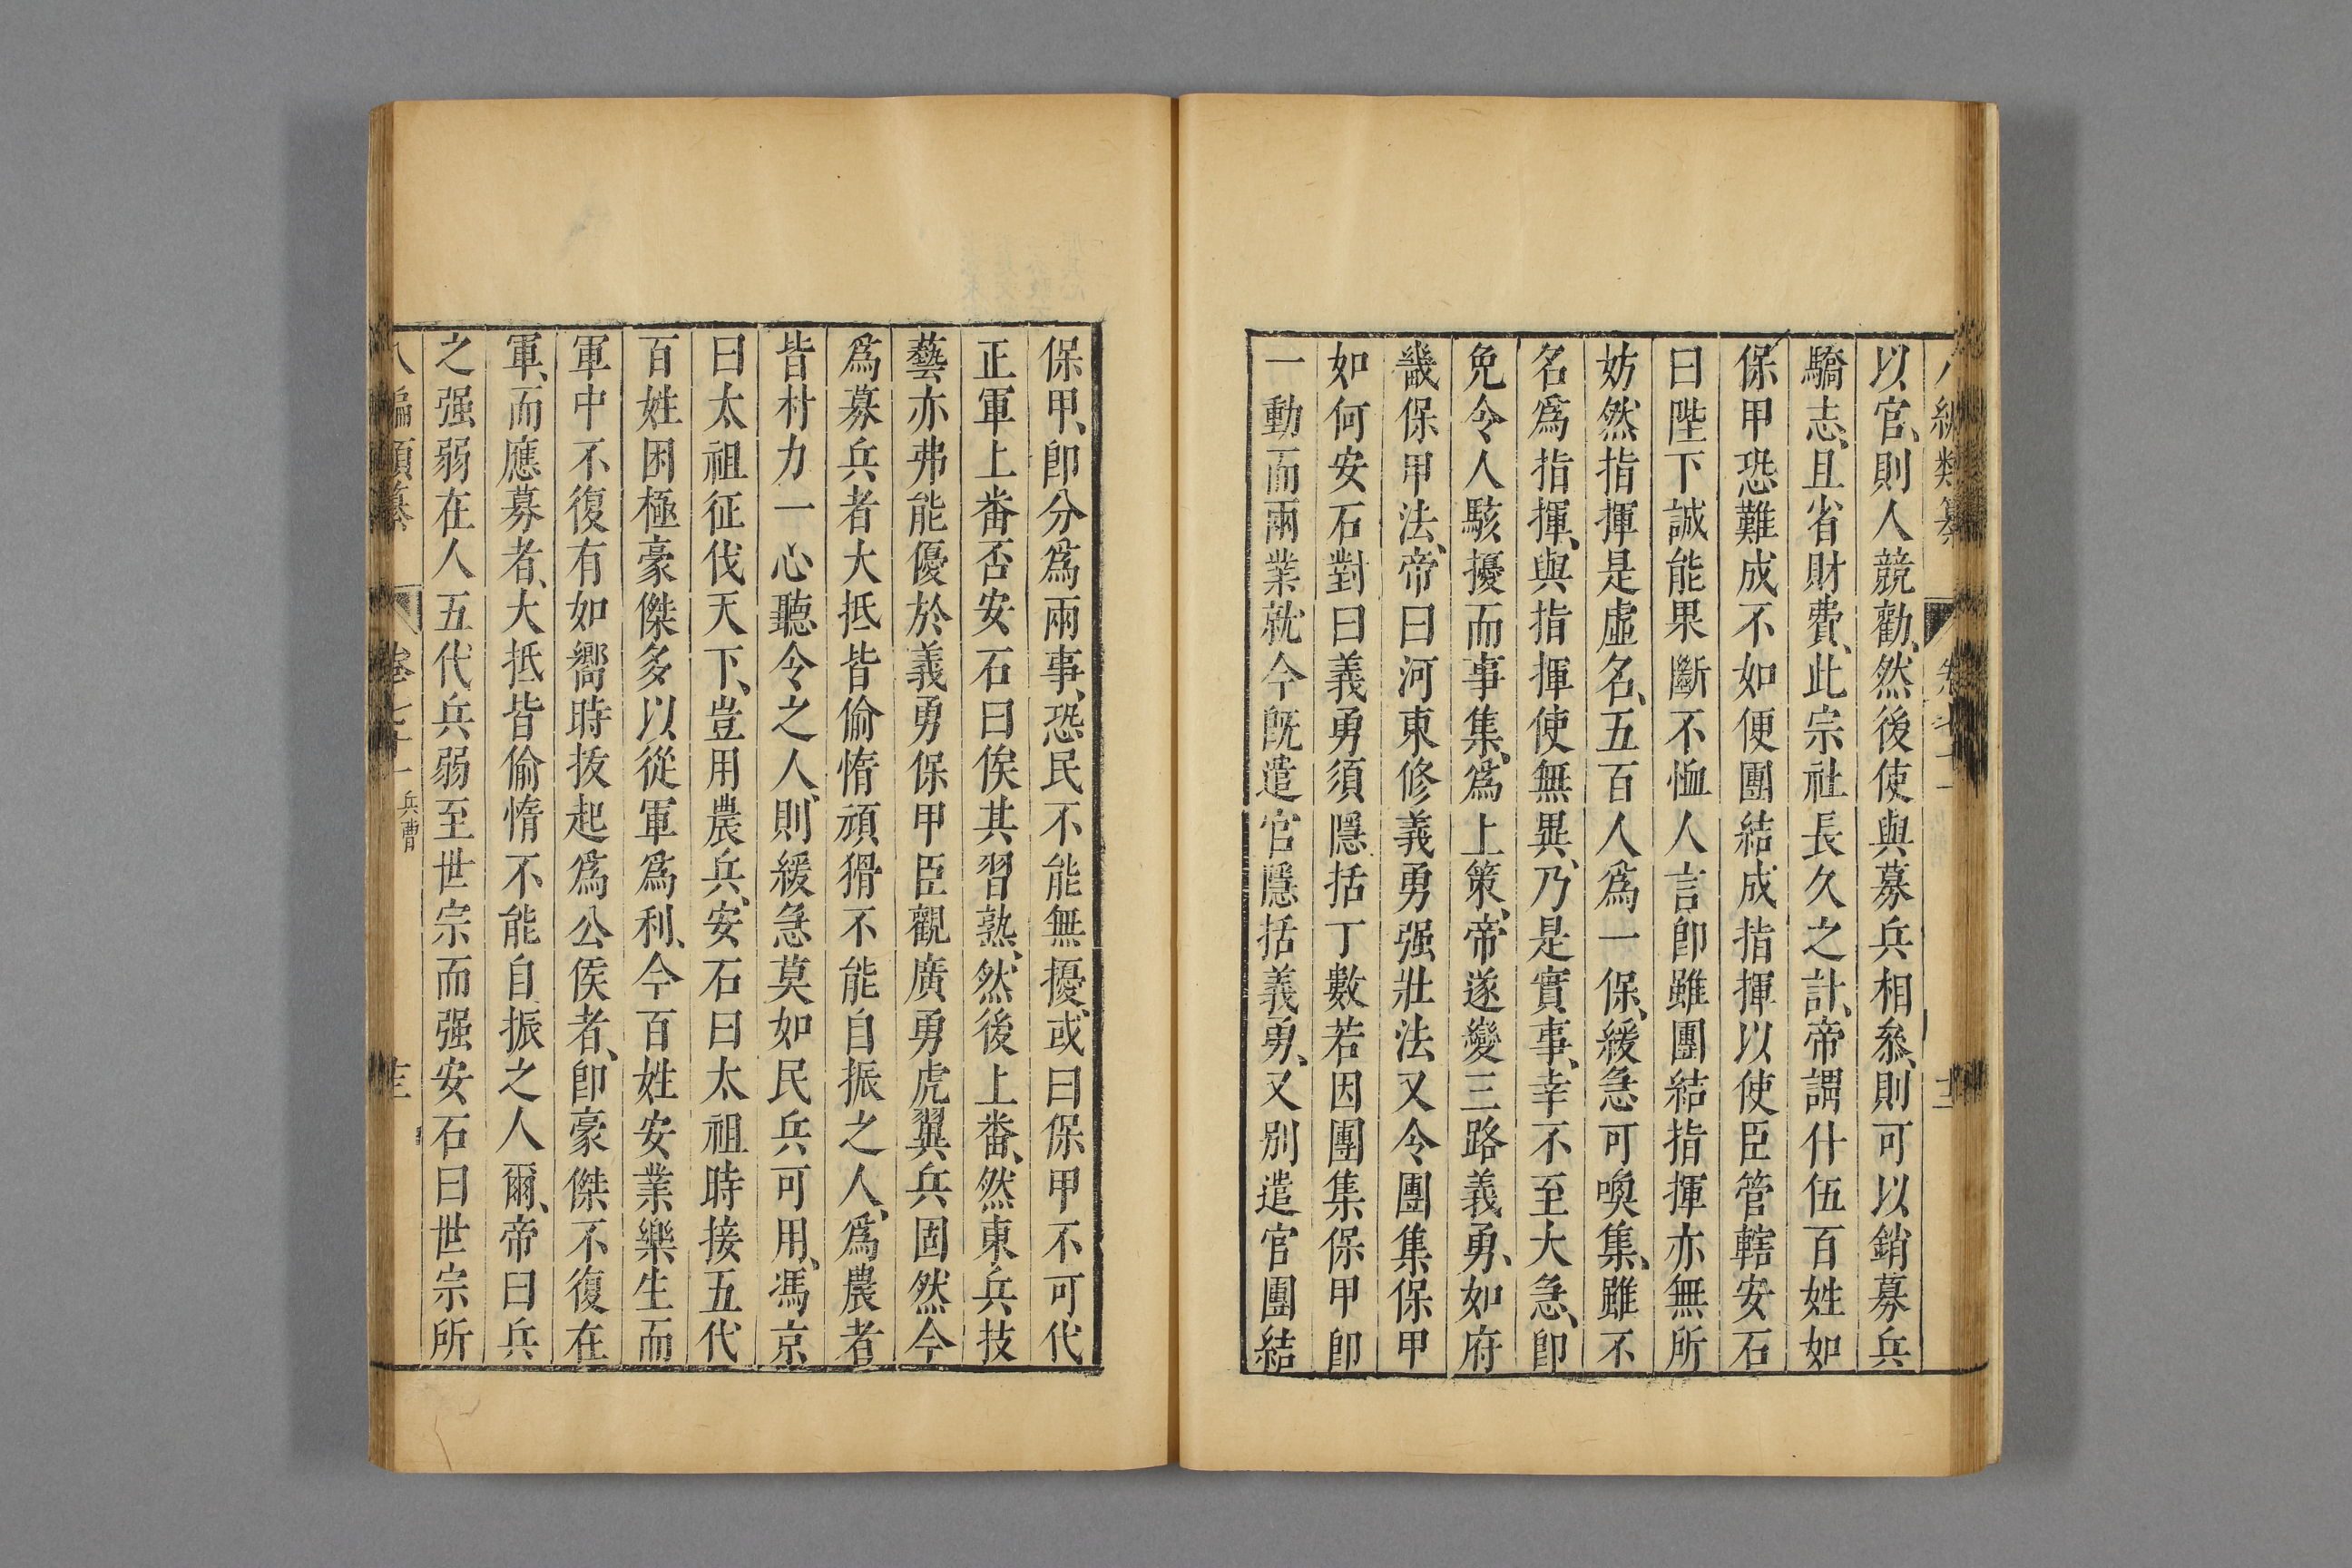 以官、則人競勸、然後使與募兵相叅、則可以銷募兵
驕志、且省財費、此宗社長久之計、帝謂什伍百姓如
保甲恐難成不如便團結成指揮以使臣管轄安石
曰陛下誠能果斷不恤人言卽雖團結指揮亦無所
妨然指揮是虛名、五百人爲一保、緩急可喚集、雖不
名爲指揮、與指揮使無異、乃是實事、幸不至大急、卽
免令人駭擾而事集、爲上策、帝遂變三路義勇、如府
畿保甲法、帝曰河東修義勇强壯法又令團集保甲
如何安石對曰義勇須隱括丁數若因團集保甲卽
一動而兩業就今旣遣官隱括義勇、又別遣官團結
保甲、卽分爲兩事、恐民不能無擾、或曰保甲不可代
正軍上番否安石曰俟其習熟、然後上番、然東兵技
藝亦弗能優於義勇保甲臣觀廣勇虎翼兵固然今
爲募兵者大抵皆偷惰頑猾不能自振之人、爲農者
皆村力一心聽令之人、則緩急莫如民兵可用、馮京
曰太祖征伐天下、豈用農兵、安石曰太祖時接五代
百姓困極豪傑多以從軍爲利、今百姓安業樂生而
軍中不復有如嚮時拔起爲公侯者、卽豪傑不復在
軍、而應募者、大抵皆偷惰不能自振之人爾、帝曰兵
之强弱在人五代兵弱至世宗而强安石曰世宗所
八編類纂 卷七十一 兵曹 十三